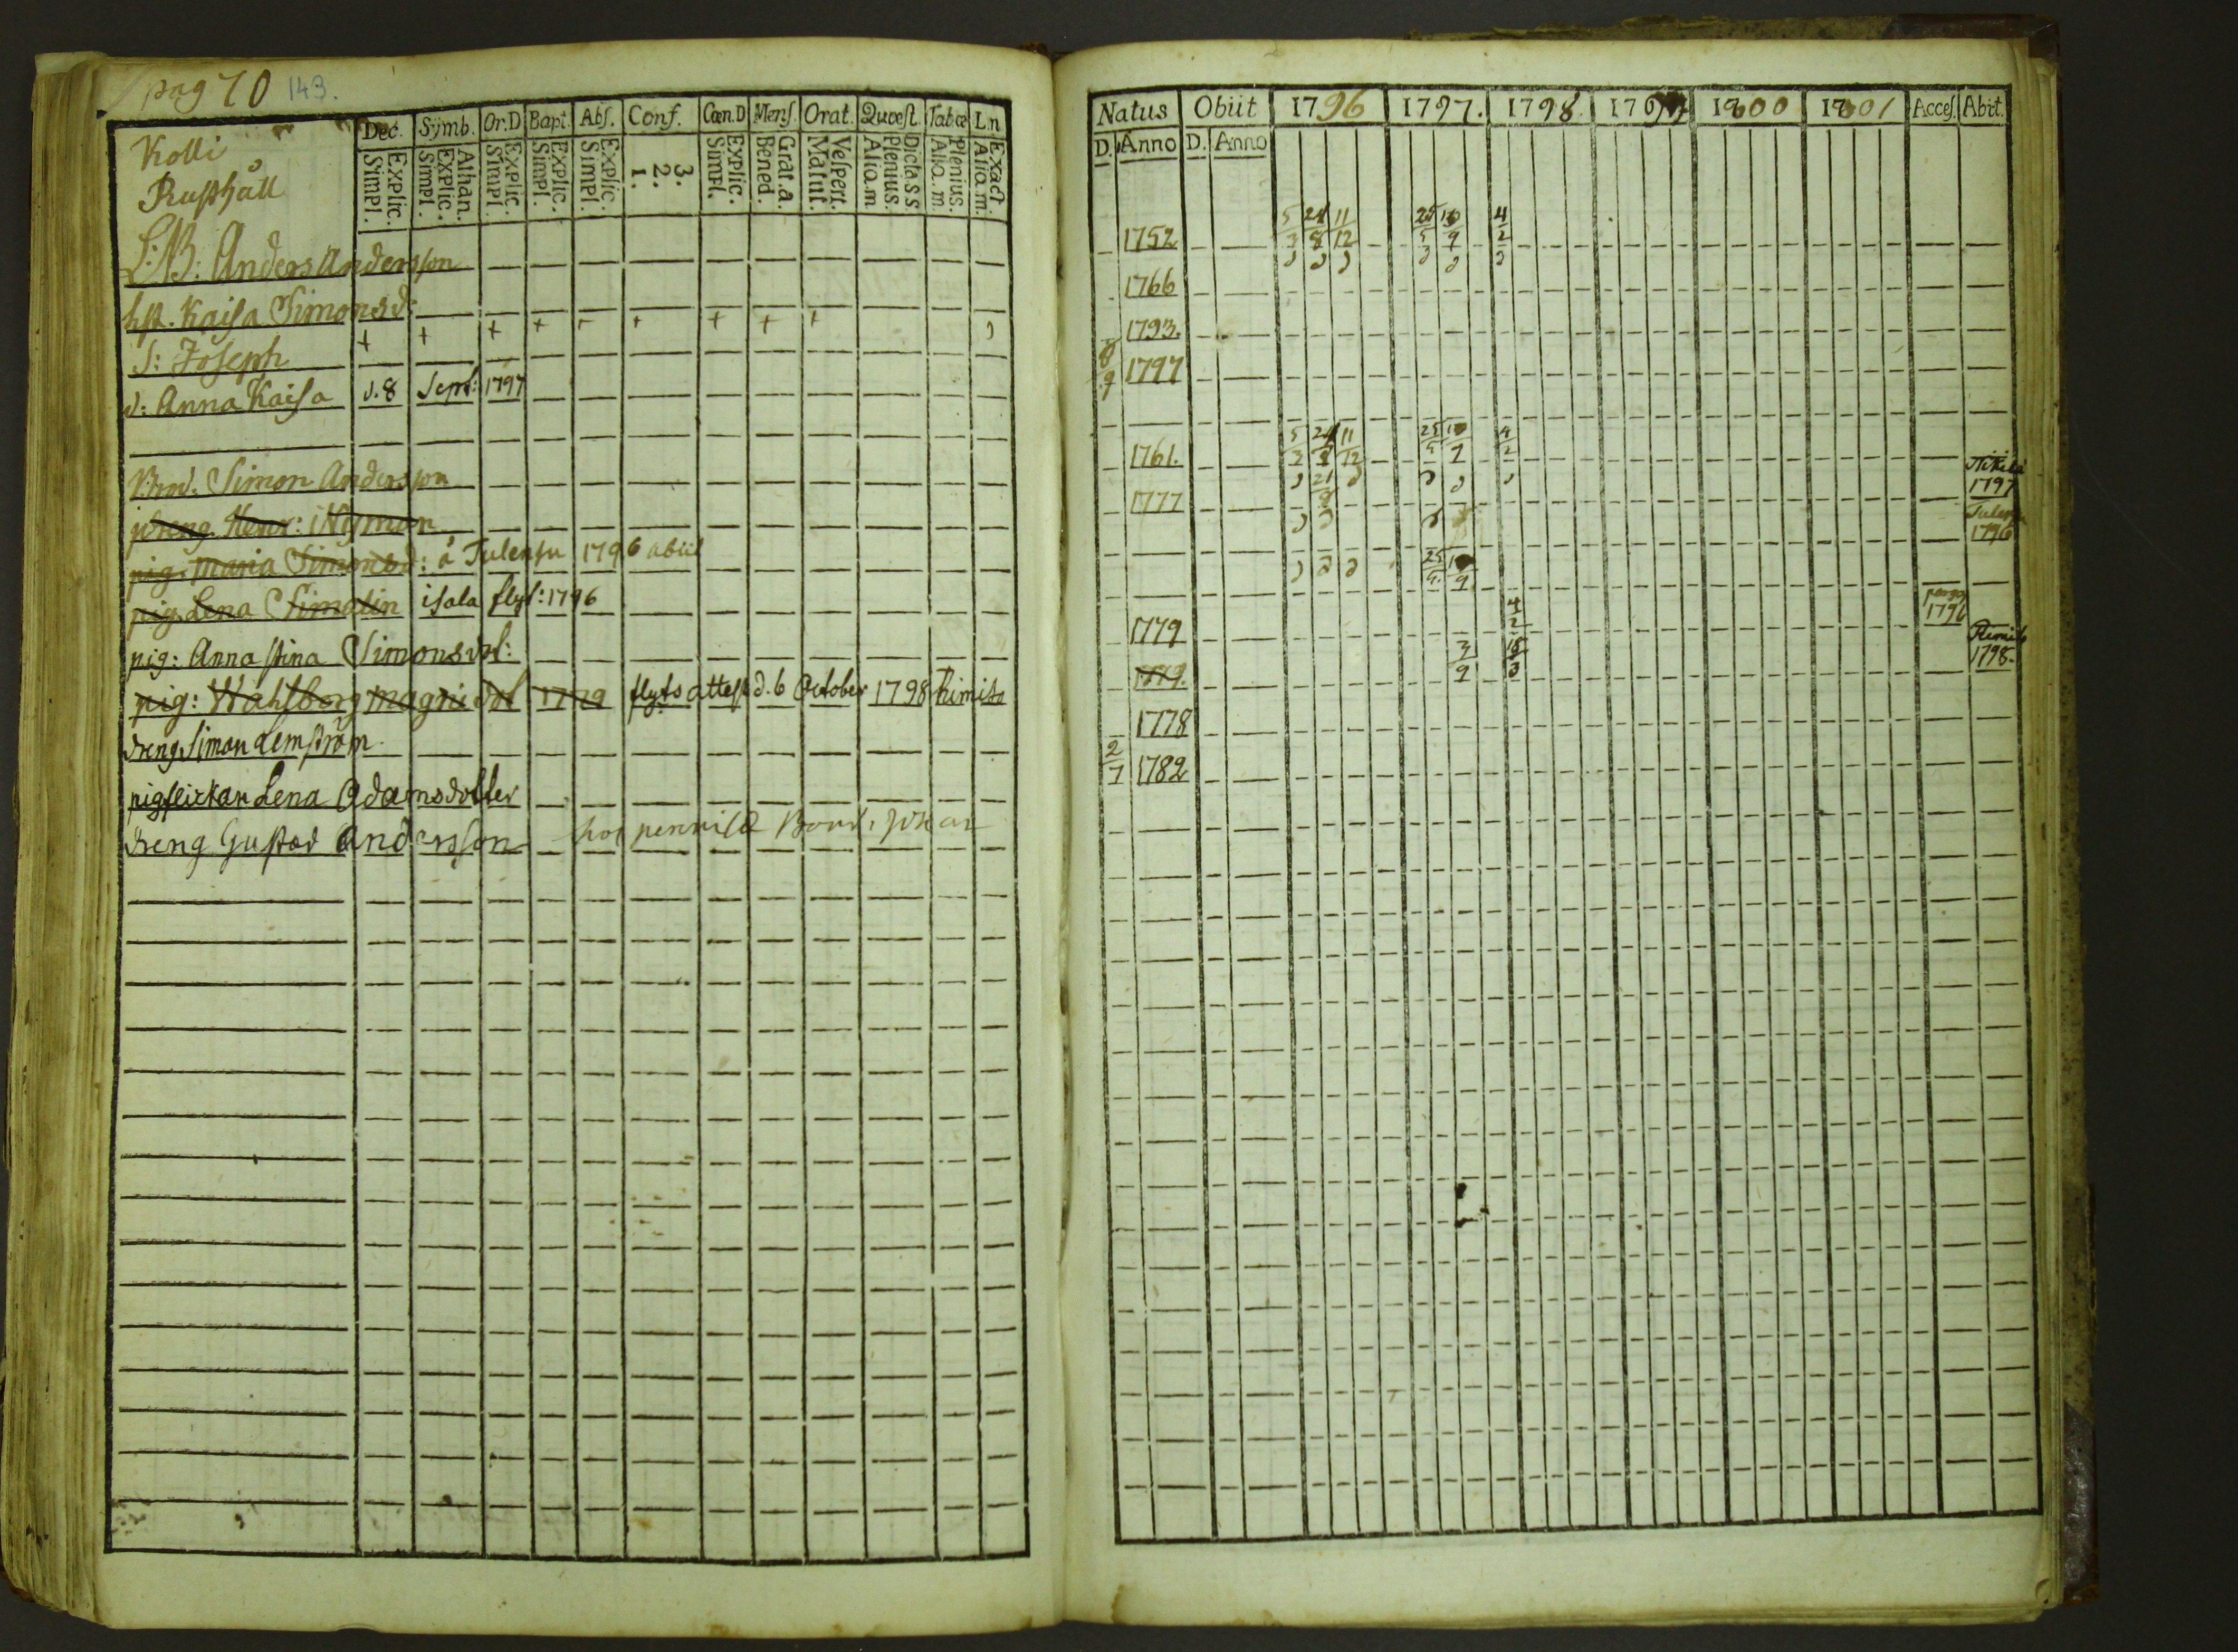 pag 70 143.
Dec. Symb. Or.D Bapt. Abſ. Conf. Cœn.D Menſ. Orat. Quœſt. Tabœ L.n
Explic. Simpl. Athan. Explic. Simpl. Explic. Simpl. Explic. Simpl. Explic. Simpl. 3. 2. 1. Explic. Simpl. Grat.a. Bened. Veſpert. Matut. Dicta S S Plenius. Alio.m Plenius. Alio.m. Exact. Alio.m.
Kolli
Rusthåll
L:B: Anders Andersson
hst. Kaisa Simonsd:
S: Joseph + + + + + + + + +
d: Anna Kaisa d. 8 Sept: 1797
Brod. Simon Andersson
dreng Henr: Nyman
pig. Maria Simonsd: å Tulensu 1796 abiit
pig. Lena Simalin isala flyt: 1796
pig: Anna Stina Simonsdot:
pig: Wahlborg Magnidot 1779 flyts attest d. 6 October 1798 Kimito
dreng. Simon Lemström
pigflickan Lena Adamsdotter
dreng Gustav Andersson
Natus Obiit 1796 1797. 1798 1799 1800 1801 Acceſ. Abit.
D. Anno D. Anno
1752 5/3 11/12 25/5 4/2
1766
1793.
8/9 1797
1761. 5/3 11/12 25/5 4/2
1777 1797
1796
25/5
1779 4/2 1796
1779. 3/9 1798.
1778
2/7 1782